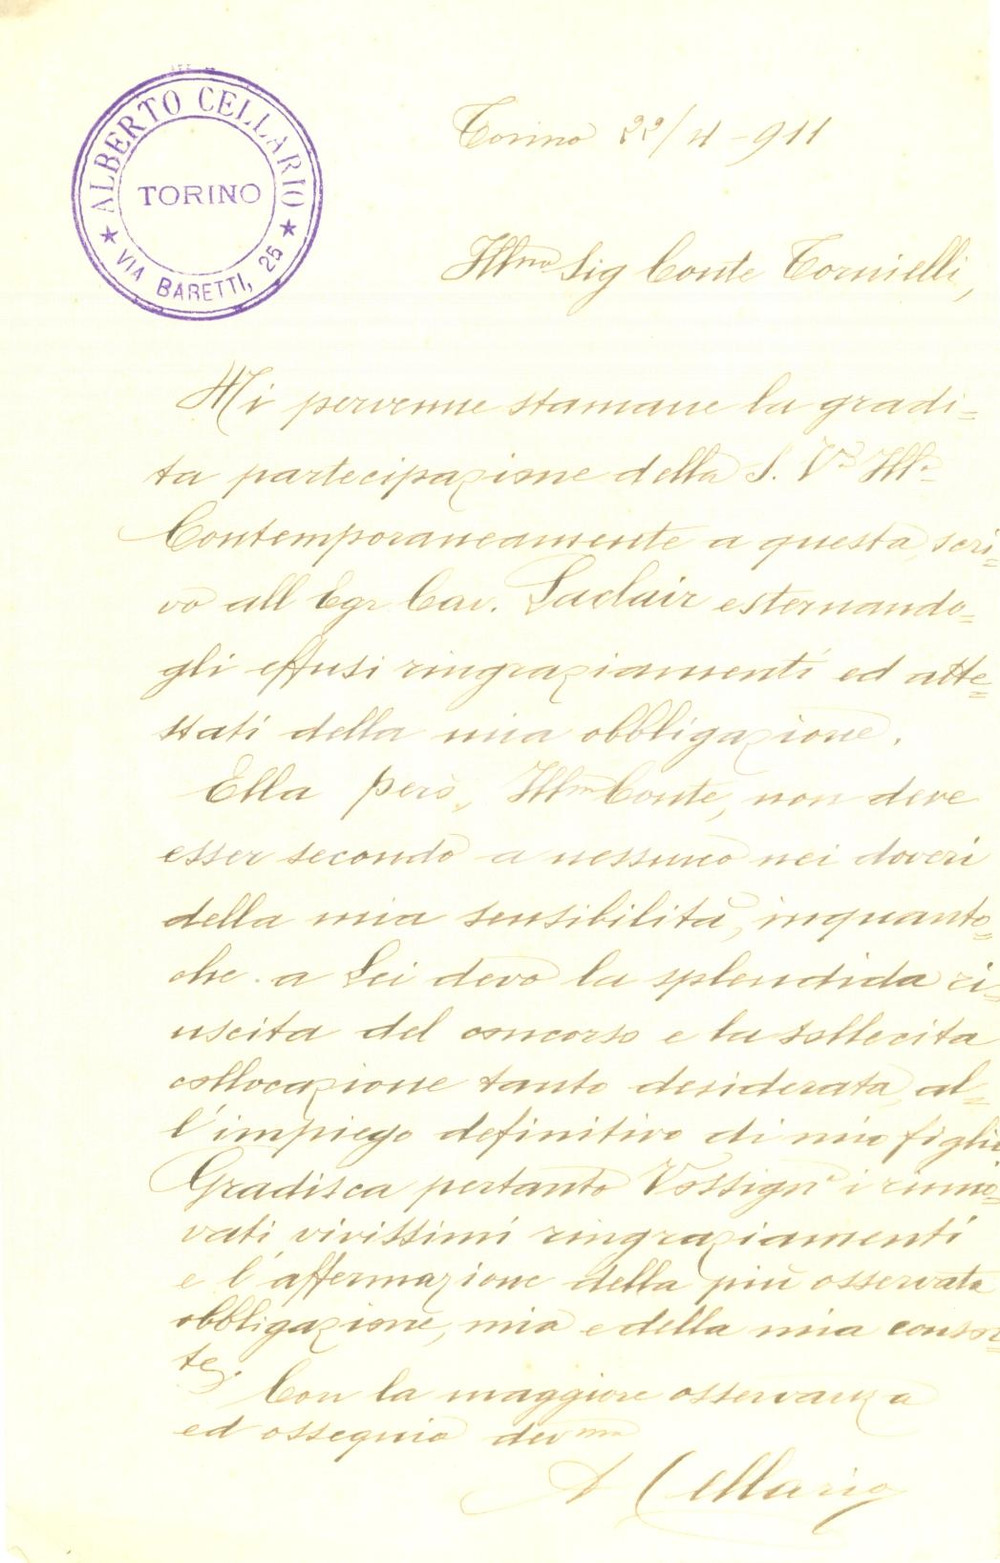 ALBERTO CELLARIO
TORINO
★ VIA BARETTI, 25 ★
Torino 22/4-911
Illmo Sig Conte Tornielli,
Mi pervenne stamane la gradi=
ta partecipazione della S. Va Illa
Contemporaneamente a questa, scri=
vo all Egr Cav. Laclair esternando=
gli effusi ringraziamenti ed atte=
stati della mia obbligazione.
Ella però, Illmo Conte, non deve
esser secondo a nessuno nei doveri
della mia sensibilità, inquanto=
che a Lei devo la splendida ri=
uscita del concorso e la sollecita
collocazione tanto desiderata, al=
l'impiego definitivo di mio figlio
Gradisca pertanto Vossigria i rinno=
vati vivissimi ringraziamenti
e l'affermazione della più osservata
obbligazione, mia e della mia consor=
te.
Con la maggiore osservanza
ed ossequio devmo
A Cellario